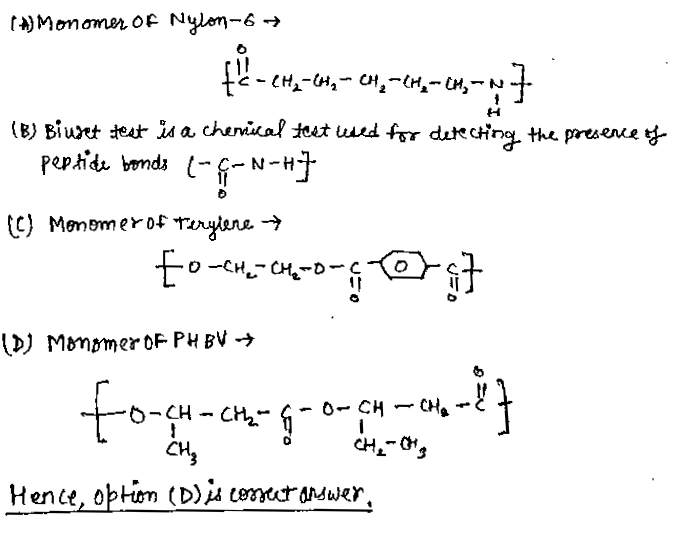 (A) Monomer OF Nylon-6 →
O
[-C-CH2-CH2-CH2-CH2-CH2-N-]
H
(B) Biuret test is a chemical test used for detecting the presence of
peptide bonds (-C-N-H]
O
(C) Monomer of Terylene →
[-O-CH2-CH2-O-C-O-C-]
O O
(D) Monomer OF PHBV →
O
[-O-CH-CH2-C-O-CH-CH2-C-]
CH3 O CH2-CH3
Hence, option (D) is correct answer.